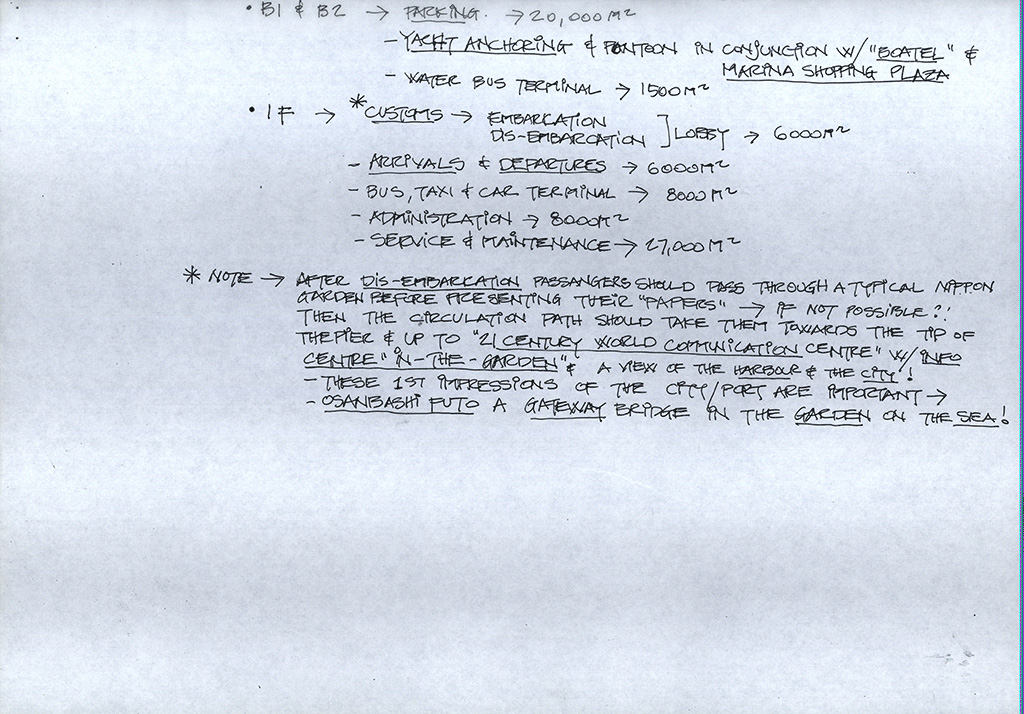 • B1 & B2 → PARKING. → 20,000M²
– YACHT ANCHORING & PONTOON IN CONJUNCTION W/ "BOATEL" &
MARINA SHOPPING PLAZA
– WATER BUS TERMINAL → 1500M²
• 1F → *CUSTOMS → EMBARCATION
DIS-EMBARCATION ] LOBBY → 6000M²
– ARRIVALS & DEPARTURES → 6000M²
– BUS, TAXI & CAR TERMINAL → 8000M²
– ADMINISTRATION → 8000M²
– SERVICE & MAINTENANCE → 27,000M²
* NOTE → AFTER DIS-EMBARKATION PASSANGERS SHOULD PASS THROUGH A TYPICAL NIPPON
GARDEN BEFORE PRESENTING THEIR "PAPERS" → IF NOT POSSIBLE?!
THEN THE CIRCULATION PATH SHOULD TAKE THEM TOWARDS THE TIP OF
THE PIER & UP TO "21 CENTURY WORLD COMMUNICATION CENTRE" W/ INFO
CENTRE "IN-THE-GARDEN" & A VIEW OF THE HARBOUR & THE CITY!
– THESE 1ST IMPRESSIONS OF THE CITY/PORT ARE IMPORTANT →
– OSANBASHI FUTO A GATEWAY BRIDGE IN THE GARDEN ON THE SEA!